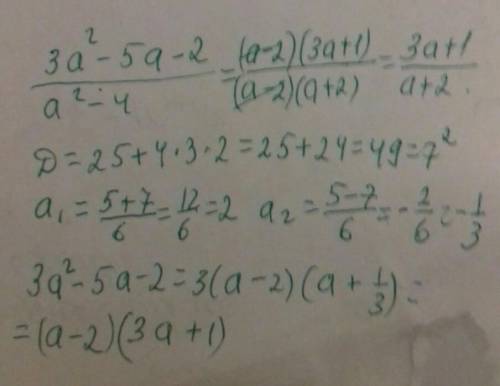 (3a² - 5a - 2)/(a² - 4) = ((a-2)(3a+1))/((a-2)(a+2)) = (3a+1)/(a+2).
Д = 25 + 4·3·2 = 25 + 24 = 49 = 7²
a₁ = (5+7)/6 = 12/6 = 2 a₂ = (5-7)/6 = -2/6 = -1/3
3a² - 5a - 2 = 3(a-2)(a + 1/3) =
= (a-2)(3a+1)